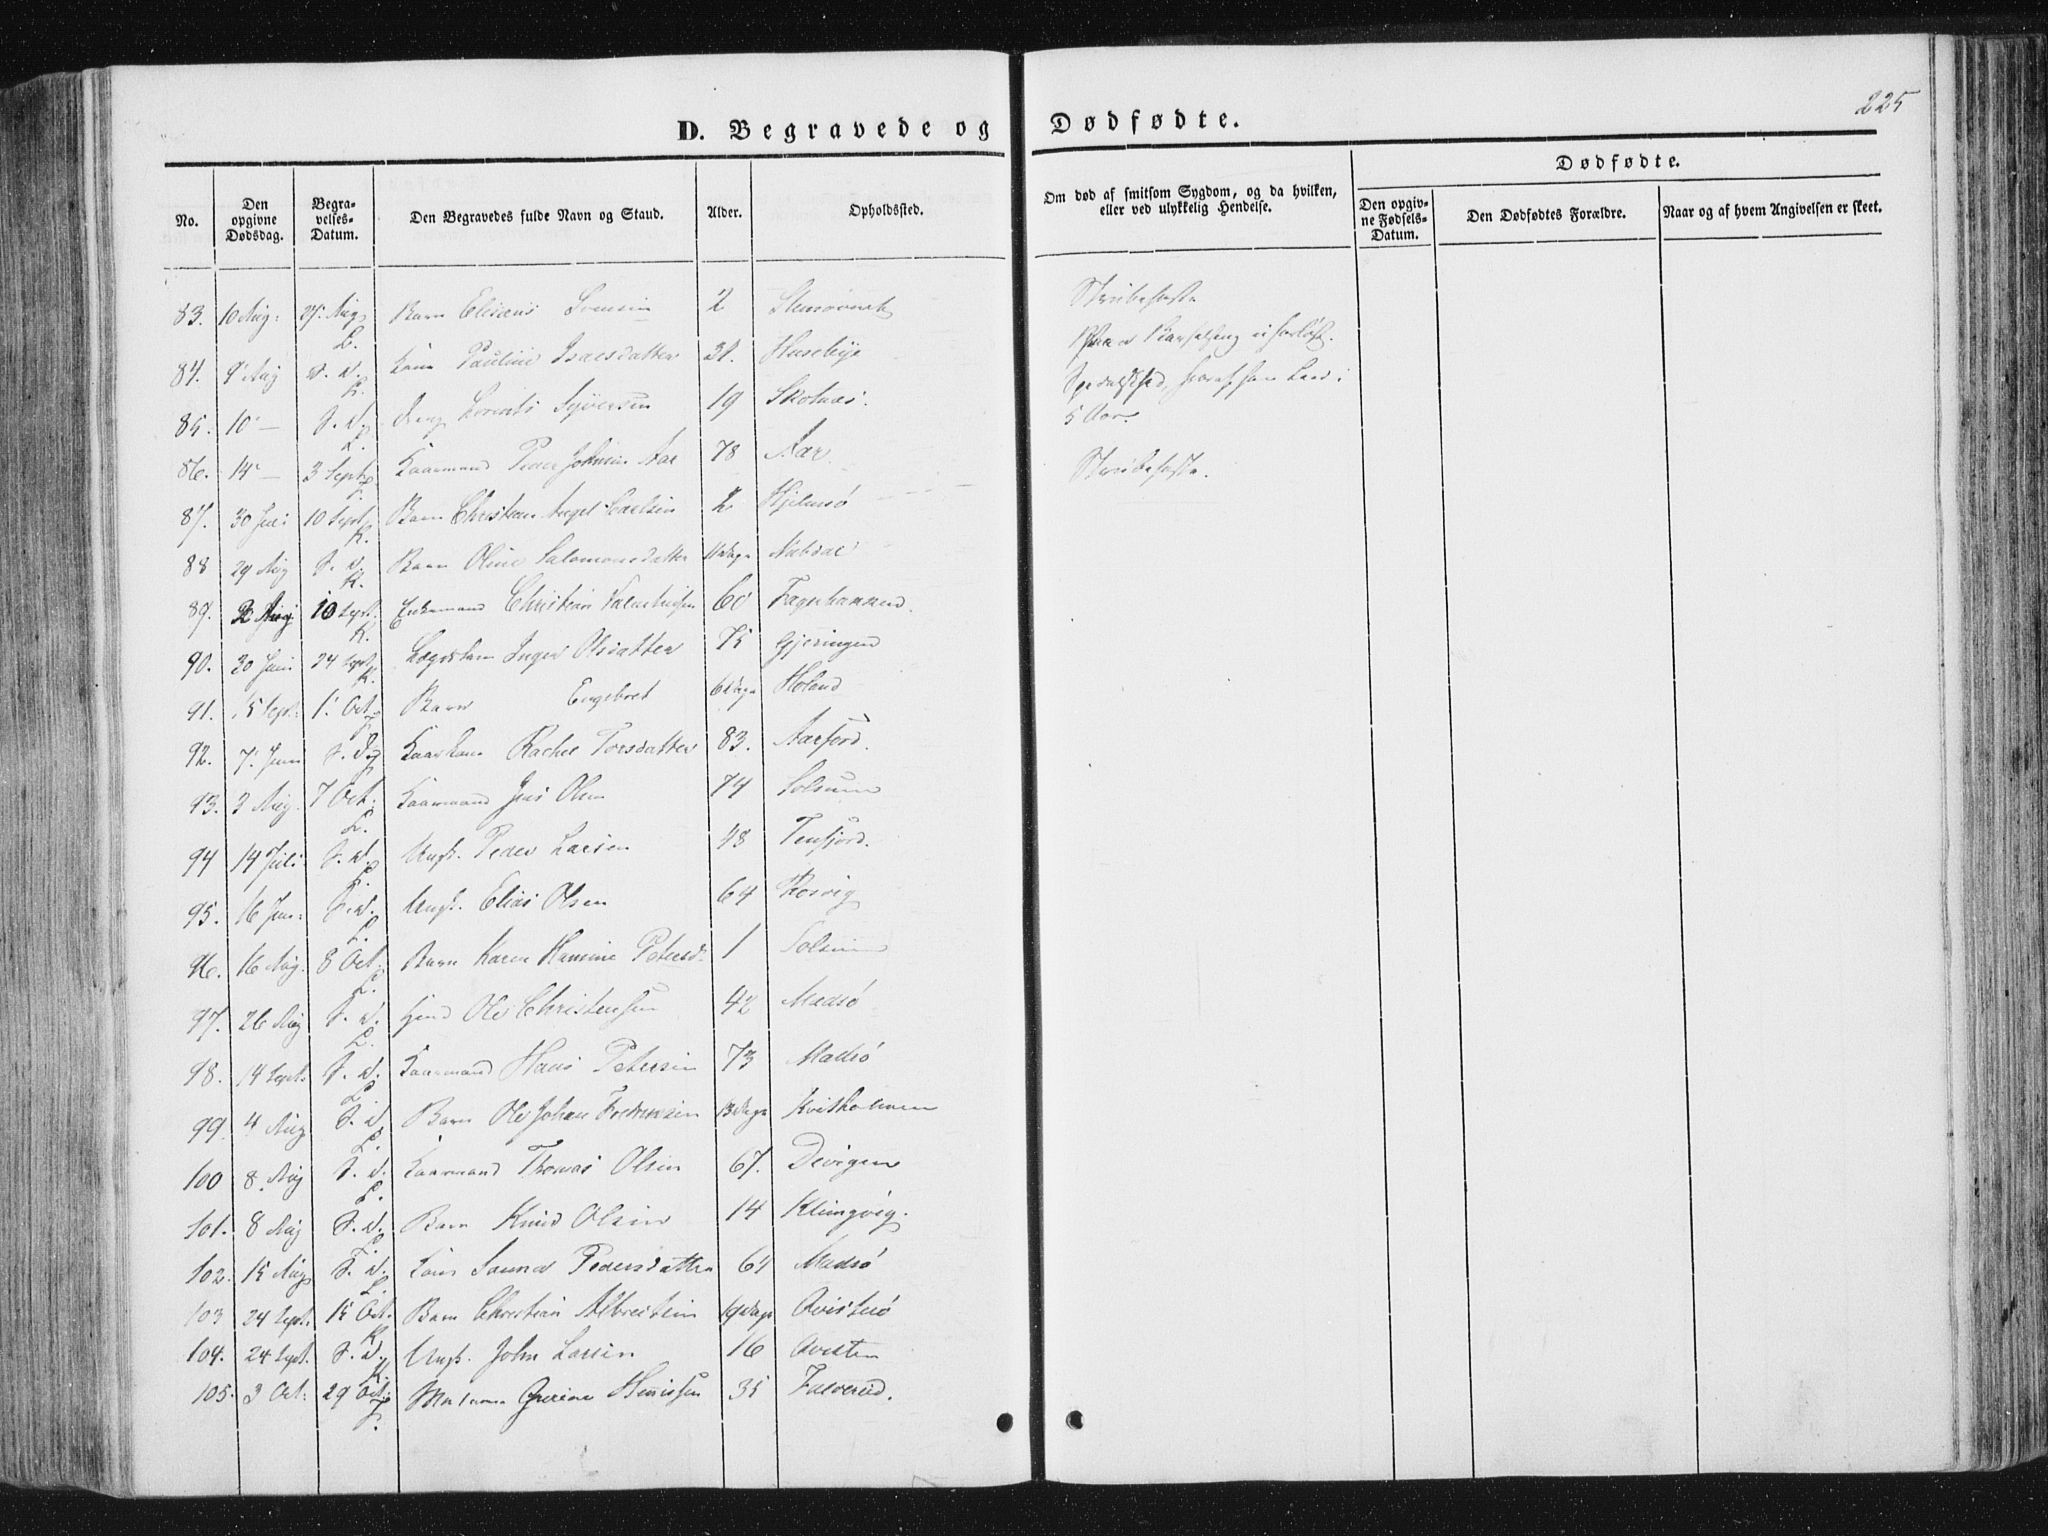 225
D. Begravede og Dødfødte.
No. Den opgivne Dødsdag. Begravelses-Datum. Den Begravedes fulde Navn og Staud. Alder. Opholdssted. Om død af smitsom Sygdom, og da hvilken, eller ved ulykkelig Hendelse. Dødfødte. Den opgivne Fødsels-Datum. Den Dødfødtes Forældre. Naar og af hvem Angivelsen er skeet.
83. 10 Aug: 27. Aug L. Barn Elisæus 2 Strubehoste
84. 9 Aug S. D. L. Kone Pauline Isacsdatter 31. Husebye
85. 10 — S. D. L. Lorents Syversen 19 Skotnæs. 5 Aar
86. 14 — 3 Sept F. Kaarmand Peder Johnsen Aar 78 Aar Strubehoste.
87. 30 Juli 10 Sept K. Barn Christian Angel Carlsen 2 Hjelmsø
88 29 Aug S. D. K. Barn Oline Salomonsdatter 11 Dage
89. 2 Aug 10 Sept. K. Enkemand Christian 60
90. 30 Juni 24 Sept K. Inger Olsdatter 75 Gjeringen
91. 15 Sept: 1. Oct F. Barn Engebret 6 Dage Høland
92. 7. Juni S. D. F. Kaarkone Rachel Torsdatter 83. Aarfjord.
93. 3 Aug. 7 Oct. L. Kaarmand Jens Olsen 74 Solsem
94 14 Juli S. D. L. Ungk. Peder Larsen 48 Tenfjord.
95. 16 Jun: S. D. L. Ungk. Elias Olsen 64 Rørvig
96. 16 Aug. 8 Oct. L. Barn Karen Hanine Petersd. 1 Solsem
97. 26 Aug S. D. L. Ole Christensen 42 Madsø
98. 14 Sept. S. D. L. Kaarmand Hans Petersen 73 Madsø
99. 4 Aug S. D. L. Barn Ole Johan Fredriksen 13 Dage Kvitholmen
100 8. Aug S. D. L. Kaarmand Thomas Olsen 67. Devigen
101. 8 Aug S. D. L. Barn Knud Olsen 14 Klungvig.
102. 15 Aug S. D. L. Kone Sanna Pedersdatter 64 Madsø
103 24 Sept. 15 Oct. K. Barn Christian Albregtsen 19 Dage Qvistersø
104. 24 Sept. S. D. K. Ungk. John Larsen 16 Qvisten
105. 3 Oct: 29 Oct: F. Madame Grerine Henrissen 35 Falvereid.